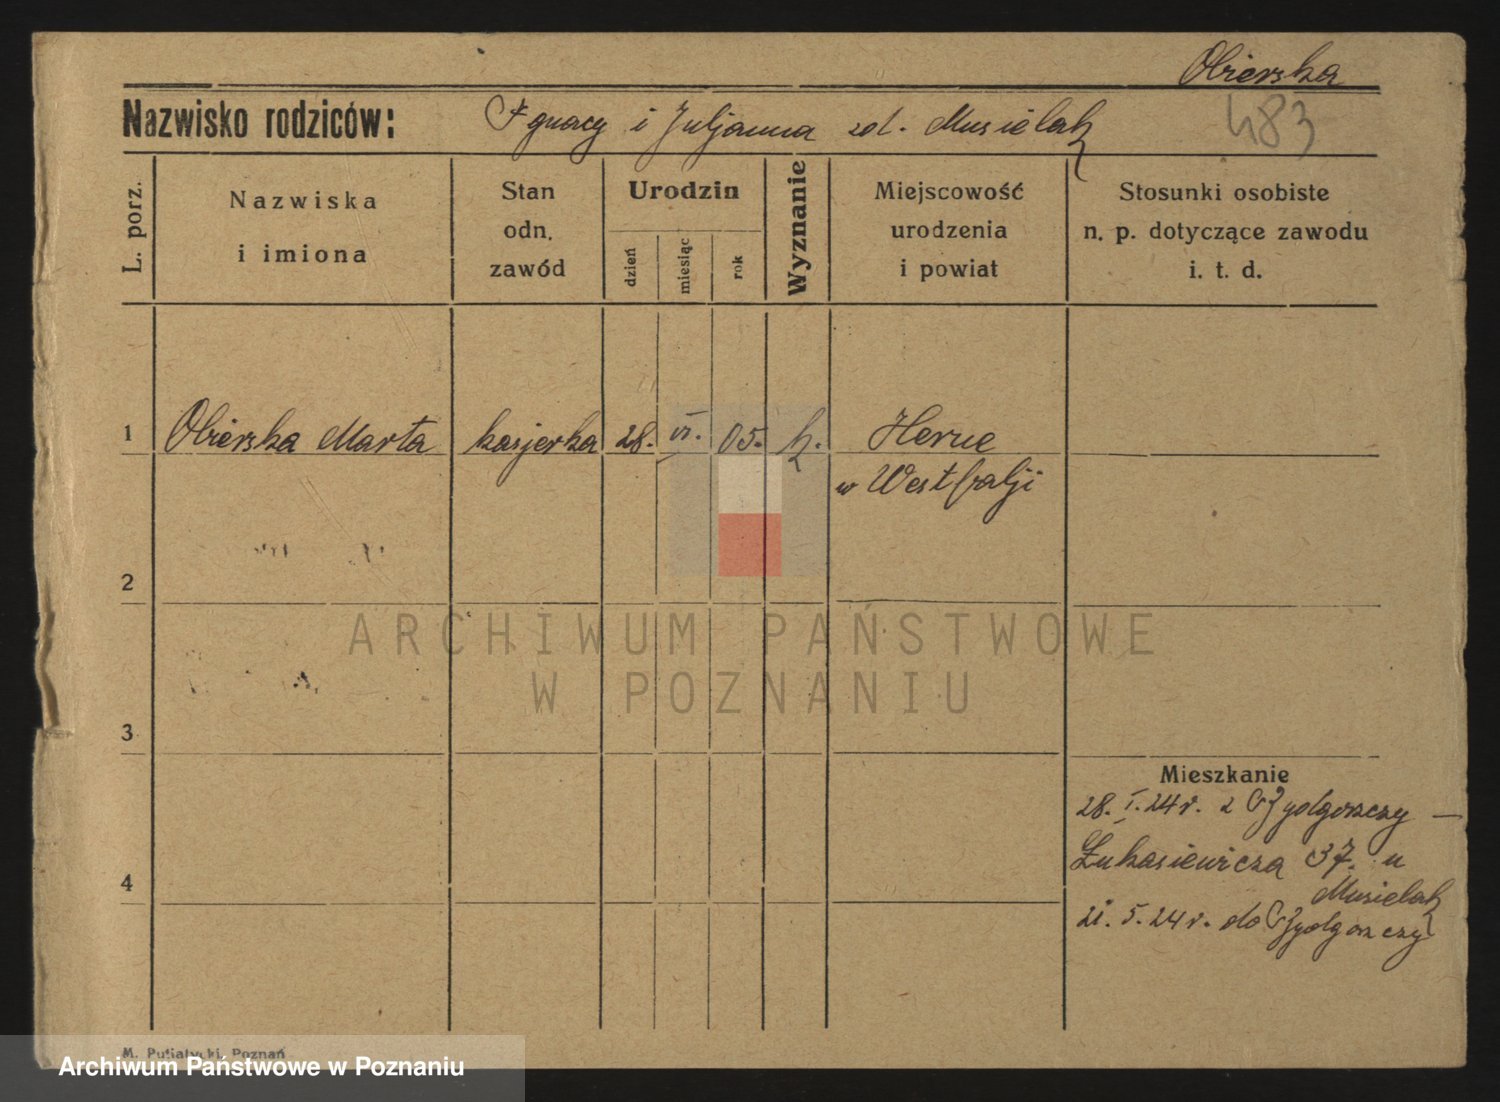 Obierska
Nazwisko rodziców: Ignacy i Juljanna zd. Musielak
483
L. porz.
Nazwiska
i imiona
Stan
odn.
zawód
Urodzin
dzień
miesiąc
rok
Wyznanie
Miejscowość
urodzenia
i powiat
Stosunki osobiste
n. p. dotyczące zawodu
i. t. d.
1 Obierska Marta kasjerka 28. VI. 05. k. Herne
w Westfalji
2
3
ARCHIWUM PAŃSTWOWE
W POZNANIU
Mieszkanie
28. I. 24 r. z Bydgoszczy —
Łukasiewicza 37. u
Musielak
4
21. 5. 24 r. do Bydgoszczy
M. Putiatycki, Poznań
Archiwum Państwowe w Poznaniu